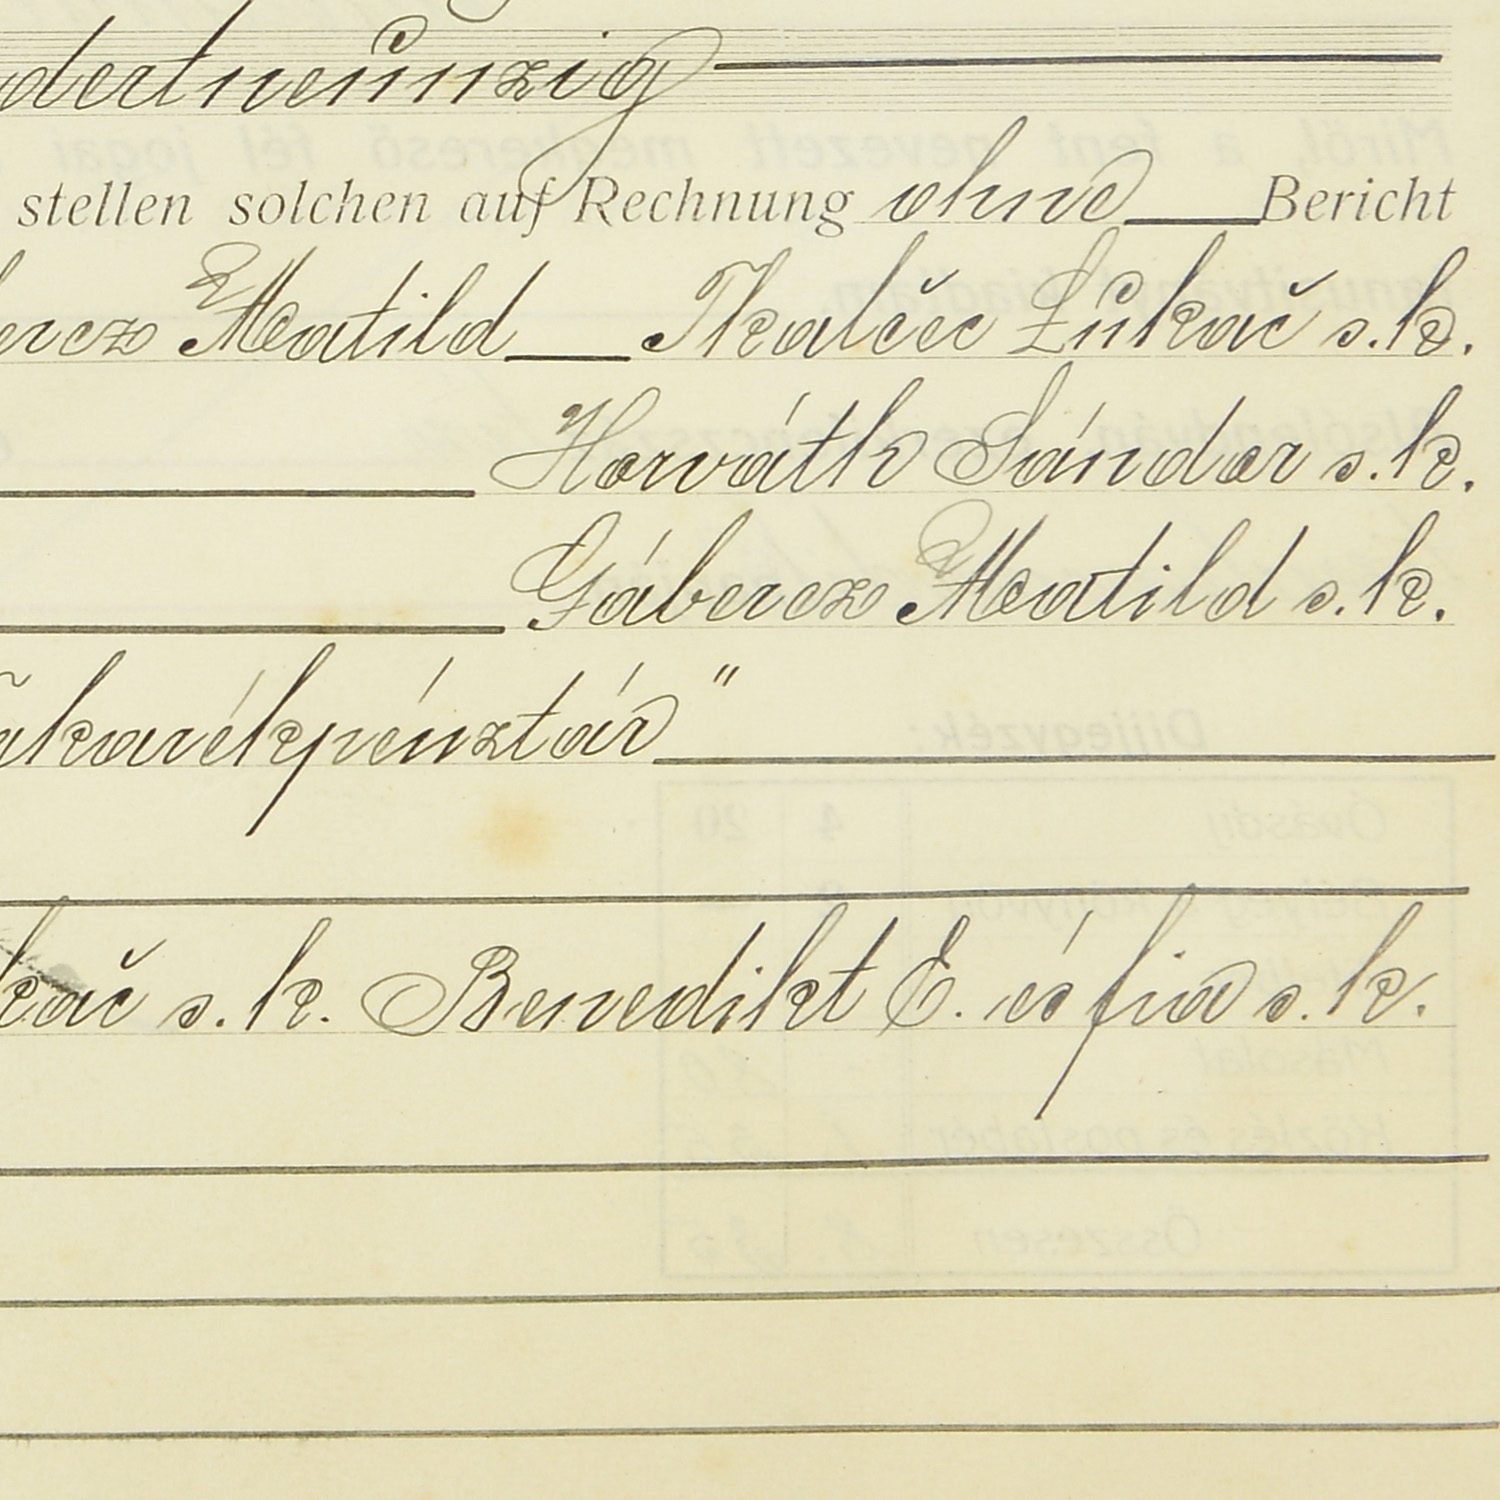 dertneunzig
stellen solchen auf Rechnung ohne Bericht
ercz Matild Tkalčec Lukač s.k.
Horváth Sándor s.k.
Gábercz Matild s.k.
akarékpénztár"
kač s.k. Benedikt E. és fia s.k.